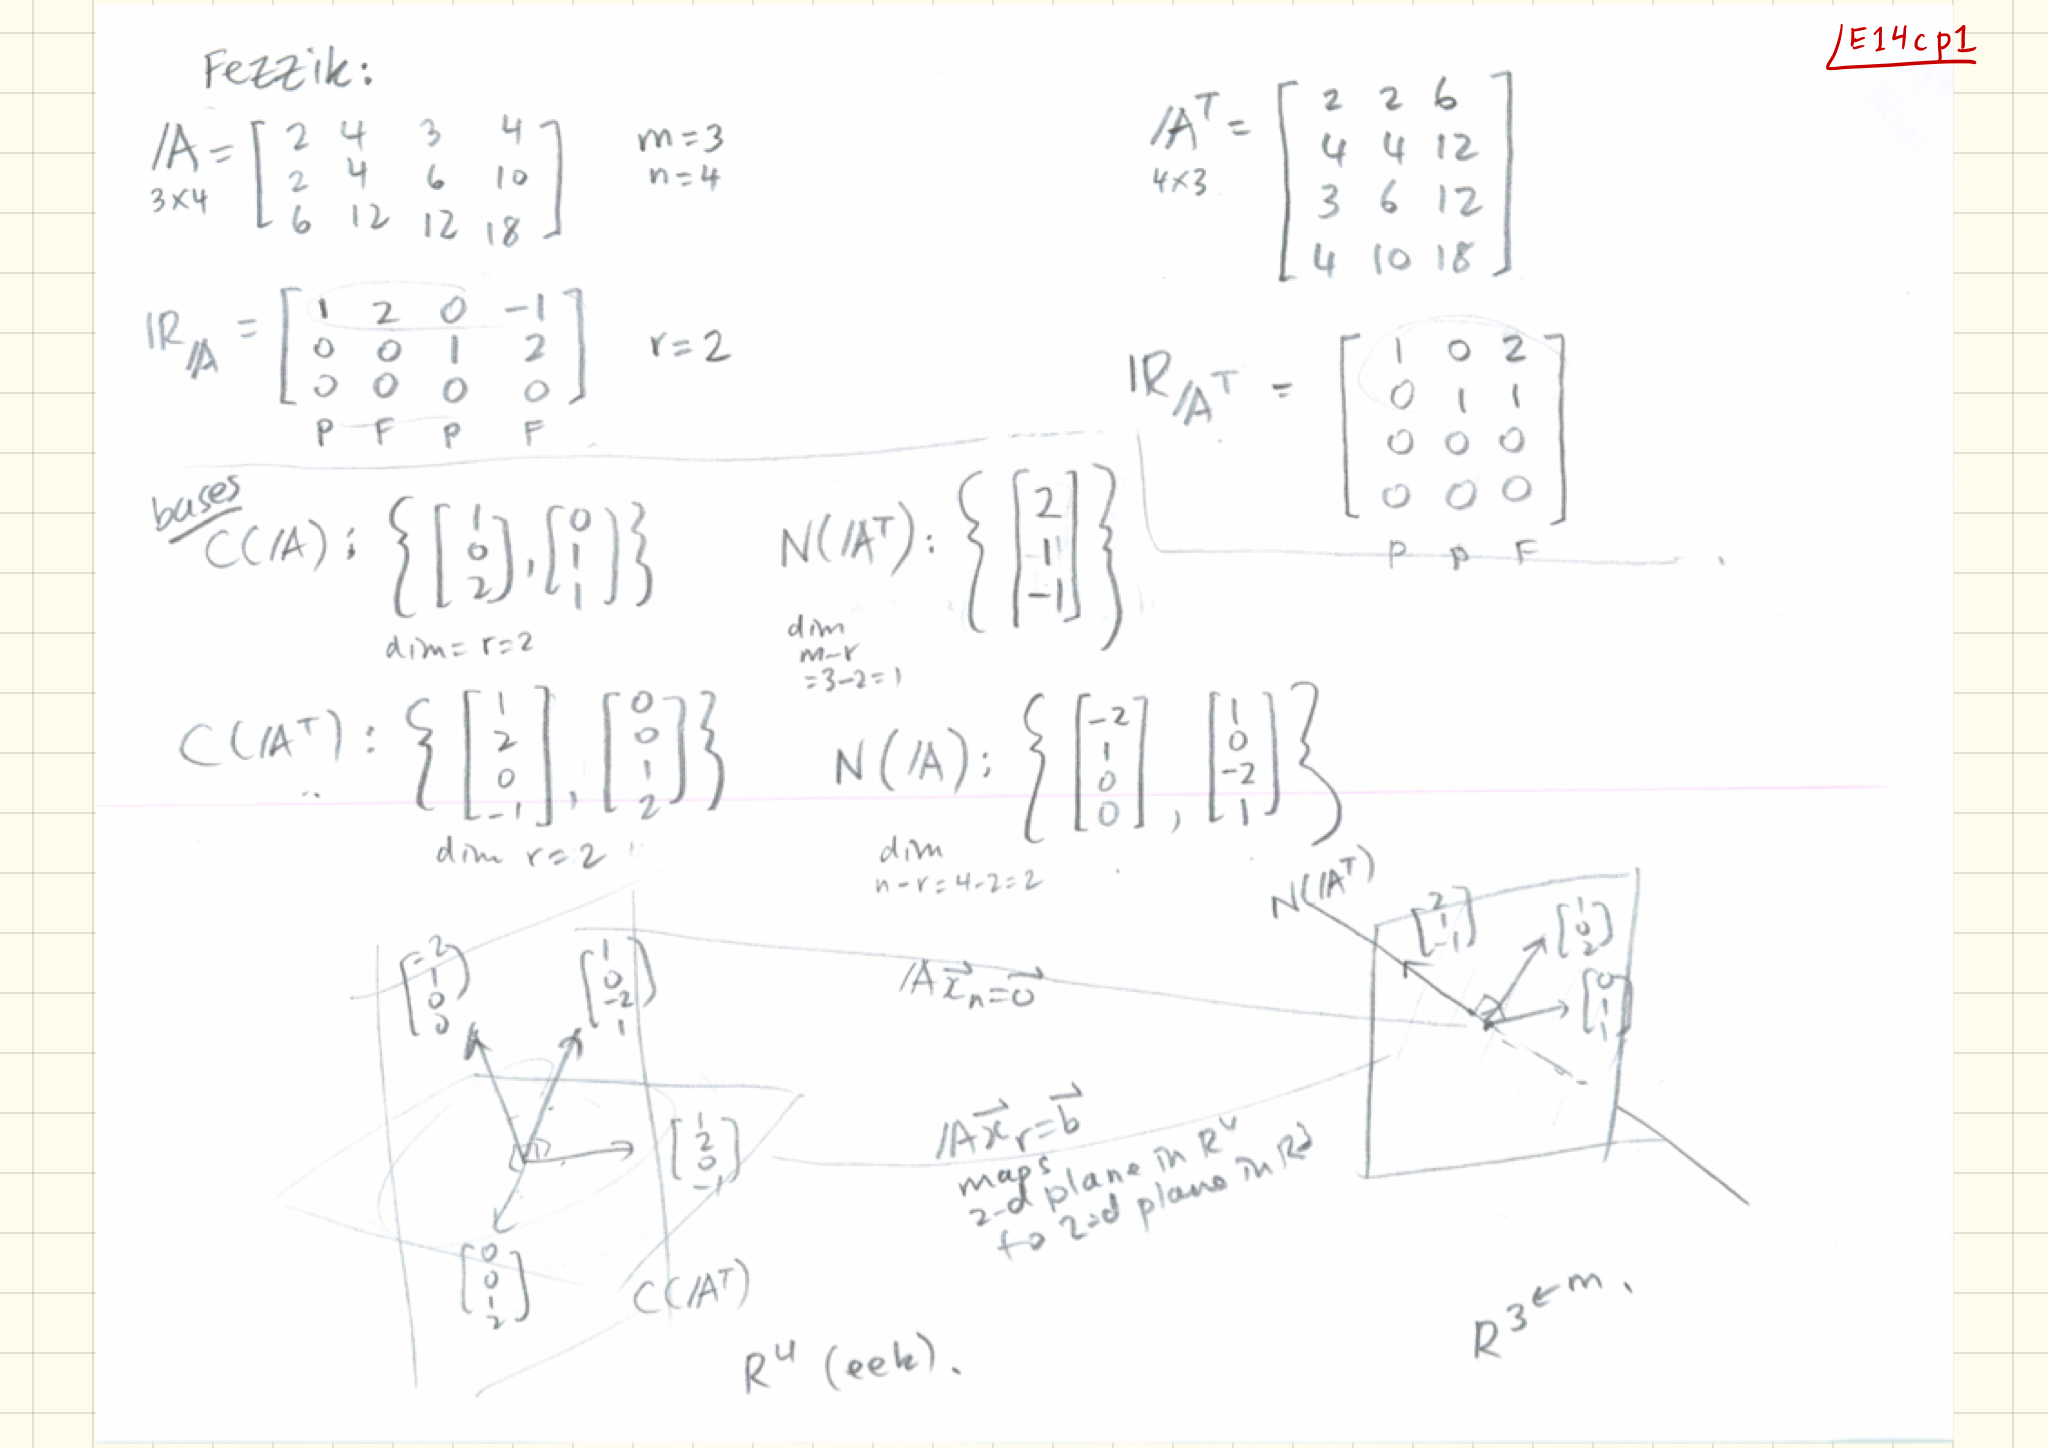 E14cp1
Fezzik:
A = [ 2 4 3 4
2 4 6 10
6 12 12 18 ]
3×4
m=3
n=4
A^T = [ 2 2 6
4 4 12
3 6 12
4 10 18 ]
4×3
R_A = [ 1 2 0 -1
0 0 1 2
0 0 0 0 ]
P F P F
r=2
R_A^T = [ 1 0 2
0 1 1
0 0 0
0 0 0 ]
P P F
bases
C(A): { [ 1 0 2 ], [ 0 1 1 ] }
dim= r=2
N(A^T): { [ 2 1 -1 ] }
dim
m-r
=3-2=1
C(A^T): { [ 1 2 0 -1 ], [ 0 0 1 2 ] }
dim r=2
N(A): { [ -2 1 0 0 ], [ 1 0 -2 1 ] }
dim
n-r=4-2=2
[ -2 1 0 0 ]
[ 1 0 -2 1 ]
[ 1 2 0 -1 ]
[ 0 0 1 2 ]
C(A^T)
R^4 (eek).
A x⃗_n = 0⃗
A x⃗_r = b⃗
maps
2-d plane in R^4
to 2-d plane in R^3
N(A^T)
[ 2 1 -1 ]
[ 1 0 2 ]
[ 0 1 1 ]
R^3 ← m.